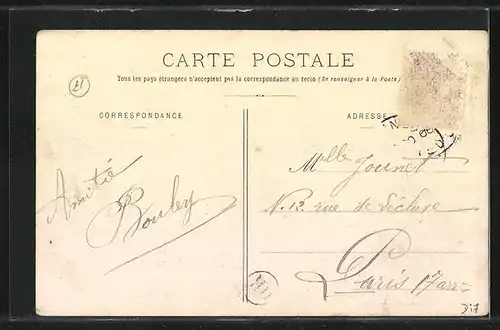 CARTE POSTALE
Tous les pays étrangers n'acceptent pas la correspondance au recto (Se renseigner à la Poste)
CORRESPONDANCE
ADRESSE
Amitié
Bouley
Mlle Jounet
N. 12. rue de Lécluse
Paris 17 arr